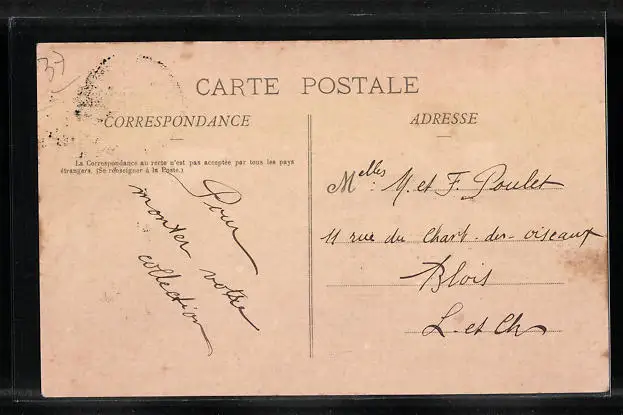 37
CARTE POSTALE
CORRESPONDANCE
ADRESSE
La Correspondance au recto n'est pas acceptée par tous les pays
étrangers. (Se renseigner à la Poste.)
Pour
monter votre
collection
Melles: Y. et F. Poulet
11 rue du Chant-des-oiseaux
Blois
L-et-Ch